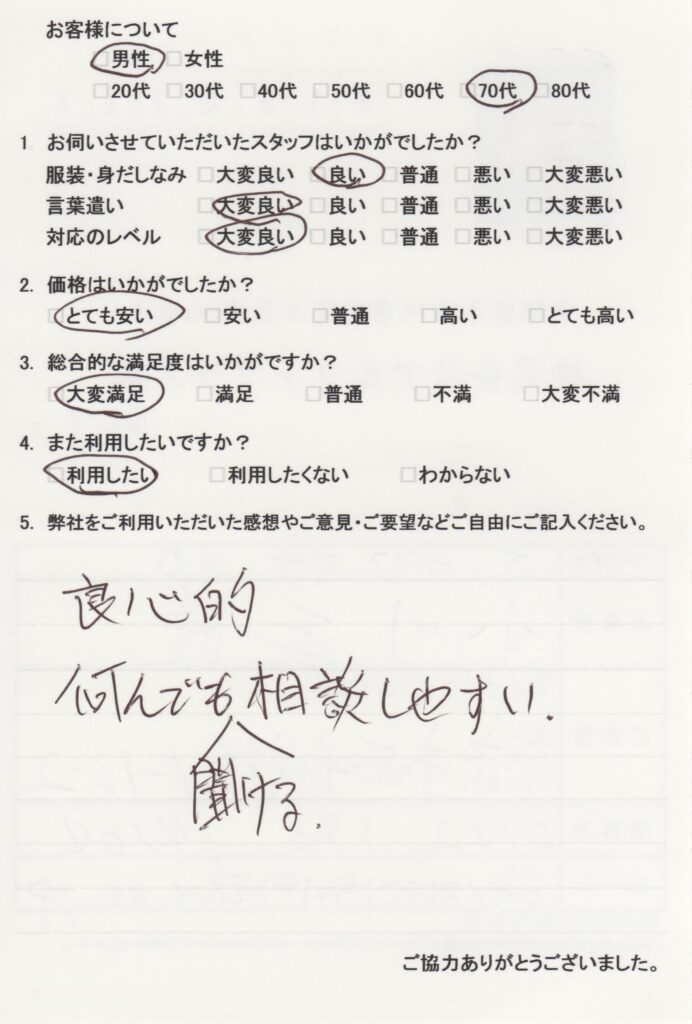 お客様について
□男性 □女性
□20代 □30代 □40代 □50代 □60代 □70代 □80代
1 お伺いさせていただいたスタッフはいかがでしたか？
服装・身だしなみ □大変良い □良い □普通 □悪い □大変悪い
言葉遣い □大変良い □良い □普通 □悪い □大変悪い
対応のレベル □大変良い □良い □普通 □悪い □大変悪い
2. 価格はいかがでしたか？
□とても安い □安い □普通 □高い □とても高い
3. 総合的な満足度はいかがですか？
□大変満足 □満足 □普通 □不満 □大変不満
4. また利用したいですか？
□利用したい □利用したくない □わからない
5. 弊社をご利用いただいた感想やご意見・ご要望などご自由にご記入ください。
良心的
何んでも相談しやすい.
聞ける.
ご協力ありがとうございました。